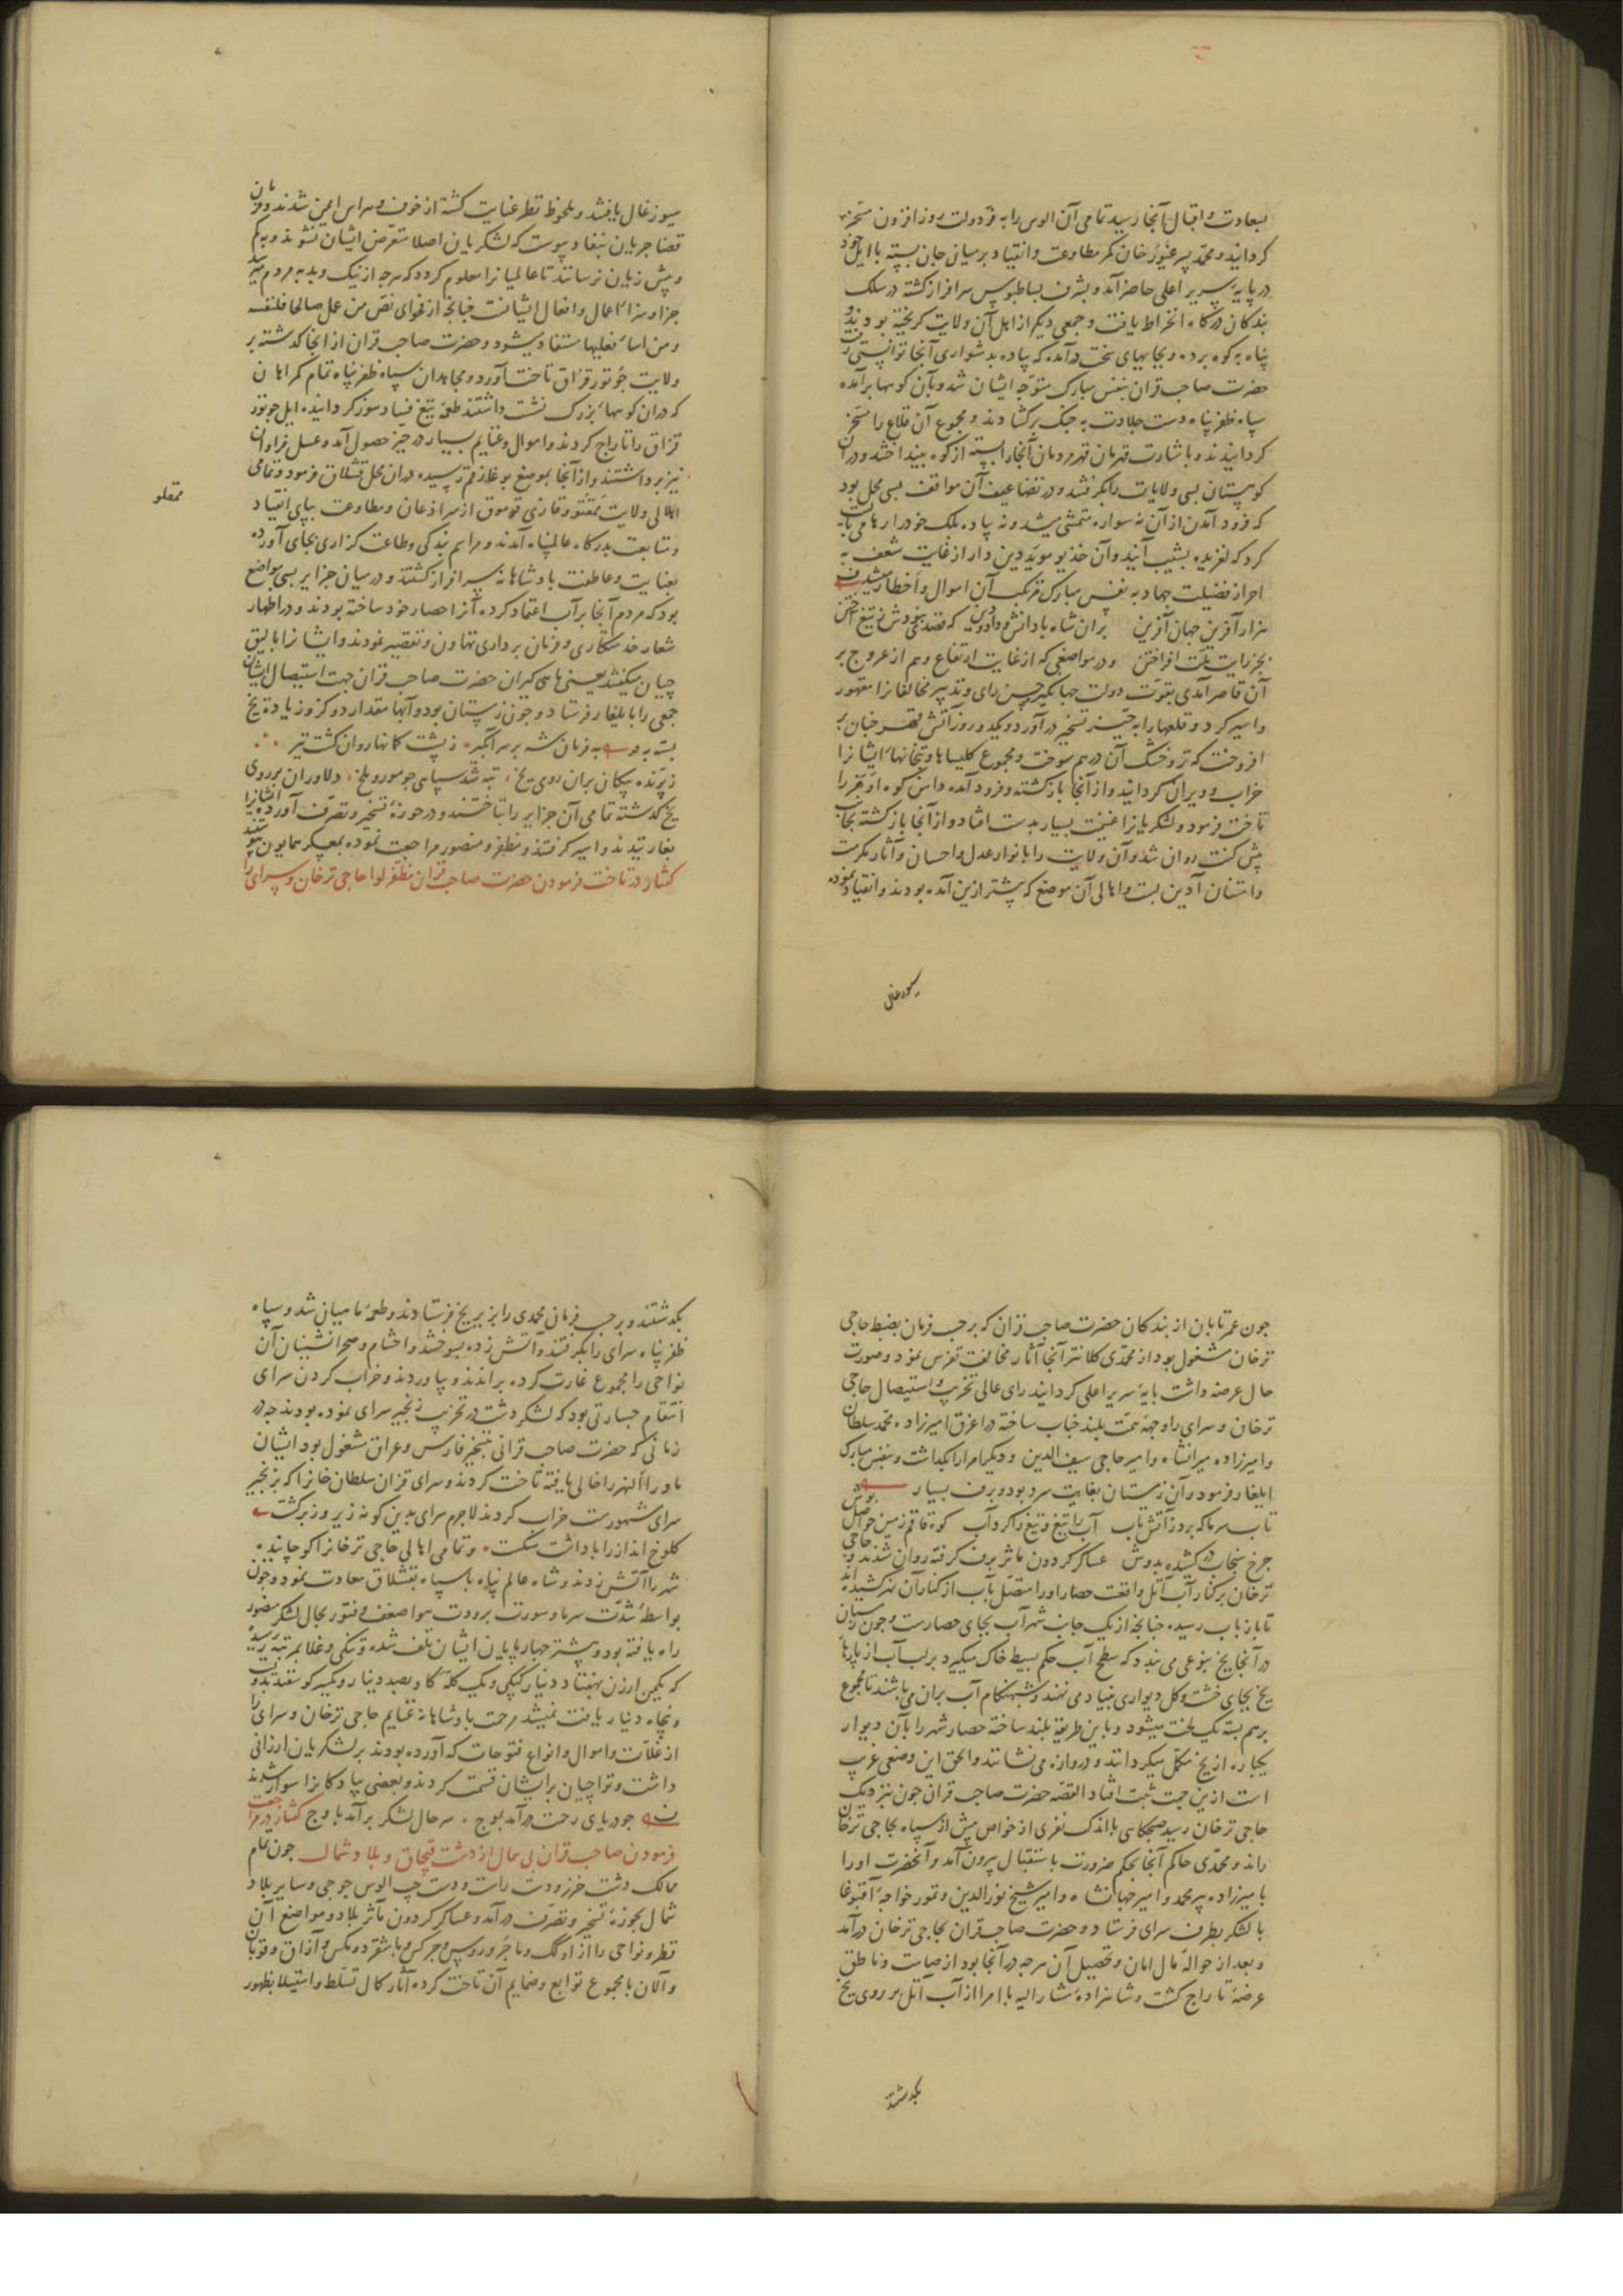 بسعادت و اقبال بآنجا رسید تمامی آن الوس را به فر دولت روز افزون مسخر
کردانید و محمد پسر غیور خان کمر مطاوعت و انقیاد بر میان جان بسته با ایل خود
در پایه سریر اعلی حاضر آمد و بشرف بساط بوس سرافراز کشته در سلک
بندکان درکاه انخراط یافت و جمعی دیکر از ایل آن ولایت کریخته بودند و
پناه به کوه برده و بجایهای سخت درآمده که پیاده بدشواری آنجا توانستی رفت
حضرت صاحب قران بنفس مبارک متوجه ایشان شد و بآن کوهها برآمده
سپاه ظفر پناه دست جلادت به جنک برکشادند و مجموع آن قلاع را مسخر
کردانیدند و باشارت قهرمان قهر مردمان آنجا را بسته از کوه بینداختند و در آن
کوهستان بسی ولایات را بکرفتند و در تضاعیف آن مواقف بسی محل بود
که فرود آمدن از آن نه سواره متمشی میشد و نه پیاده بلک خود را رها می بایست
کرد که لغزیده بشیب آیند و آن خدیو موید دین دار از غایت شعف به
احراز فضیلت جهاد به نفس مبارک مرتکب آن اهوال و اخطار میشد
هزار آفرین جهان آفرین بران شاه با دانش و داد و دین که قصدش نبودش ز تیغ آختن
بجز رایت ملت افراختن و در مواضعی که از غایت ارتفاع وهم از عروج بر
آن قاصر آمدی بقوت دولت جهانکیر و حسن رای و تدبیر مخالفانرا مقهور
و اسیر کرد و قلعها را به حیز تسخیر درآورد و یکدو روز آتش قهر چنان بر
افروخت که تر و خشک آن درهم سوخت و مجموع کلیساها و بتخانهاء ایشانرا
خراب و ویران کردانید و از آنجا بازکشته و فرود آمده دامن کوه اوهر را
تاخت فرمود و لشکریانرا غنیمت بسیار بدست افتاد و از آنجا بازکشته بجانب
بش کنت روان شد و آن ولایت را بانوار عدل و احسان و آثار مکرمت
و امتنان آذین بست و اهالی آن موضع که پیشتر ازین آمده بودند و انقیاد نموده
سیورغال
سیورغال یافتند و ملحوظ نظر عنایت کشته از خوف و هراس ایمن شدند و فرمان
قضا جریان بنفاد پیوست که لشکریان اصلا متعرض ایشان نشوند و به کم
و بیش زیان نرسانند تا عالمیانرا معلوم کردد که هرچه از نیک و بد به مردم میرسد
جزا و سزاء اعمال و افعال ایشانست چنانچه از فحوای نص من عمل صالحا فلنفسه
و من اساء فعلیها مستفاد میشود و حضرت صاحب قران از انجا کذشته بر
ولایت جوتور قزاق تاخت آورد و مجاهدان سپاه ظفر پناه تمام کمراهان
که دران کوهها بزرک نشست داشتند طعمه تیغ فساد سوز کردانیده ایل جوتور
قزاق را تاراج کردند و اموال و غنایم بسیار در حیز حصول آمد و عسل فراوان
نیز برداشتند و از آنجا بموضع بوغاز قم رسیده دران محل قشلاق فرمود و تمامی
اهالی ولایت ممقتو و قازی قوموق از سر اذعان و مطاوعت بپای انقیاد
ممقلو
و متابعت بدرکاه عالمپناه آمدند و مراسم بندکی و طاعت کزاری بجای آورده
بعنایت و عاطفت پادشاهانه سرافراز کشتند و در میان جزایر بسی مواضع
بود که مردم آنجا بر آب اعتماد کرده آنرا حصار خود ساخته بودند و در اظهار
شعار خدمتکاری و فرمان برداری تهاون و تقصیر نمودند و ایشانرا بالیق
جیان میکفتند یعنی ماهی کیران حضرت صاحب قران جهت استیصال ایشان
جمعی را بایلغار فرستاد و جون زمستان بود و آبها مقدار دو کز و زیاده یخ
بسته بود به فرمان شه بر سر آبکیر ز پشت کمانها روان کشت تیر
ز پرنده پیکان بران روی یخ تبه شد سپاهی جو مور و ملخ دلاوران بر روی
یخ کذشته تمامی آن جزایر را بتاختند و در حوزه تسخیر و تصرف آورده ایشانرا
بغارتیدند و اسیر کرفتند و مظفر و منصور مراجعت نموده بمعسکر همایون پیوستند
کفتار در تاخت فرمودن حضرت صاحب قران مظفر لوا حاجی ترخان و سرای را
جون عمر تابان از بندکان حضرت صاحب قران که برحسب فرمان بضبط حاجی
ترخان مشغول بود از محمدی کلانتر آنجا آثار مخالفت تفرس نمود و صورت
حال عرضه داشت پایه سریر اعلی کردانید رای عالی تخریب و استیصال حاجی
ترخان و سرای را وجهه همت بلند جناب ساخته در اغرق امیرزاده محمد سلطان
و امیرزاده میرانشاه و امیر حاجی سیف الدین و دیکر امرا را بکذاشت و بنفس مبارک
ایلغار فرمود و آن زمستان بغایت سرد بود و برف بسیار
تاب سرما که برد از آتش تاب آب را تیغ و تیغ را کرد آب کوه قاقم زمین حواصل پوش
جرخ سنجاب درکشیده بدوش عساکر کردون مآثر برف کرفته روان شدند و حاجی
ترخان بر کنار آب اتل واقعست حصار او را متصل بآب از کنار آن برکشیده اند
تا باز باب رسیده چنانچه از یک جانب شهر آب بجای حصارست و جون زمستان
در آنجا یخ بنوعی می بندد که سطح آب حکم بسیط خاک میکیرد بر لب آب از پارهاء
یخ بجای خشت و کل دیواری بنیاد می نهند و شبهنکام آب بران می پاشند تا مجموع
برهم بسته یک لخت میشود و باین طریقه بلند ساخته حصار شهر را بآن دیوار
یکپاره از یخ مکمل میکردانند و دروازه می نشانند و الحق این وضعی غریب
است ازین جهت ثبت افتاد القصه حضرت صاحب قران جون نزدیک
حاجی ترخان رسید صبحکاهی با اندک نفری از خواص پیش از سپاه بحاجی ترخان
راند و محمدی حاکم آنجا بحکم ضرورت باستقبال بیرون آمد و آنحضرت او را
با میرزاده پیر محمد و امیر جهانشاه و امیر شیخ نورالدین و تمور خواجه آقبوغا
با لشکر بطرف سرای فرستاد و حضرت صاحب قران بحاجی ترخان درآمد
و بعد از حواله مال امان و تحصیل آن هرچه در آنجا بود از صامت و ناطق
عرضه تاراج کشت و شاهزاده مشار الیه با امرا از آب اتل بر روی یخ
بکذشتند
بکذشتند و برحسب فرمان محمدی را بزیر یخ فرستادند و طعمه ماهیان شد و سپاه
ظفر پناه سرای را بکرفتند و آتش زده بسوختند و احشام و صحرانشینان آن
نواحی را مجموع غارت کرده براندند و بیاوردند و خراب کردن سرای
انتقام جسارتی بود که لشکر دشت در تخریب زنجیر سرای نموده بودند جه در
زمانی که حضرت صاحب قرانی بتسخیر فارس و عراق مشغول بود ایشان
ماورا النهر را خالی یافته تاخت کردند و سرای قزان سلطان خانرا که بزنجیر
سرای مشهورست خراب کردند لاجرم سرای بدین کونه زیر و زبر کشت
کلوخ انداز را پاداش سنکست و تمامی اهالی حاجی ترخانرا کوچانیده
شهر را آتش زدند و شاه عالم پناه با سپاه بقشلاق معاودت نمود و جون
بواسطه شدت سرما و سورت برودت هوا ضعف و فتور بحال لشکر منصور
راه یافته بود و بیشتر چهارپایان ایشان تلف شده و تنکی و غلا بمرتبه رسید
که یکمن ارزن بهفتاد دینار کپکی و یک کله کاو بصد دینار و یکسر کوسفند بدویست
و پنجاه دینار یافت نمیشد مرحمت پادشاهانه غنایم حاجی ترخان و سرای را
از غلات و اموال و انواع فتوحات که آورده بودند بر لشکریان ارزانی
داشت و تواجیان بر ایشان قسمت کردند و بعضی پیادکانرا سوار شدند
جو دریای رحمت درآمد بموج سر حال لشکر برآمد باوج کفتار در مراجعت
فرمودن صاحب قران بی همال از دشت قبچاق و بلاد شمال جون تمام
ممالک دشت خزر و دست راست و دست چپ الوس جوجی و سایر بلاد
شمال بحوزه تسخیر و تصرف درآمد و عساکر کردون مآثر بلاد و مواضع آن
قطر و نواحی را از اوکک و ماجر و روس و چرکس و باشقرد و مکس و آزاق و قوبان
و آلان با مجموع توابع و ضمایم آن تاخت کرده آثار کمال تسلط و استیلا بظهور